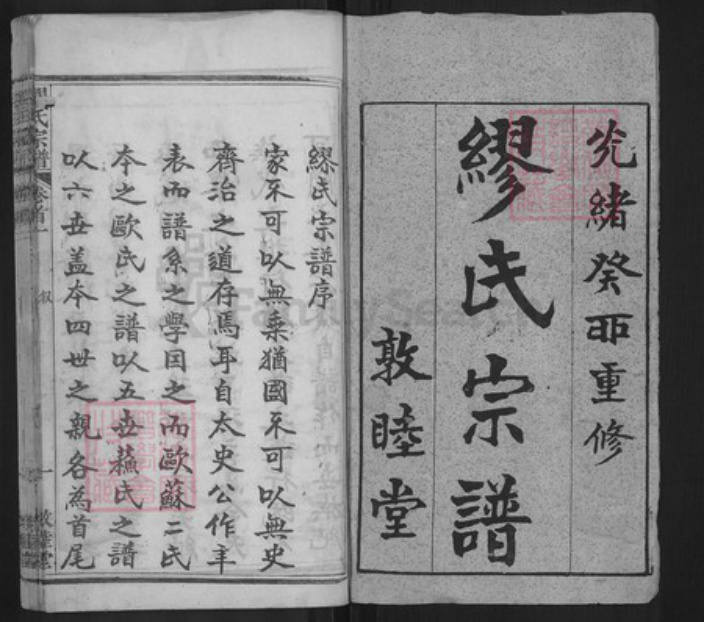 光緒癸酉重修
繆氏宗譜
敦睦堂
繆氏宗譜序
家不可以無乘猶國不可以無史
齊治之道存焉耳自太史公作年
表而譜系之學因之而歐蘇二氏
本之歐氏之譜以五世蘇氏之譜
以六世盖本四世之親各為首尾
氏宗譜
卷首
叙
一
FamilySearch